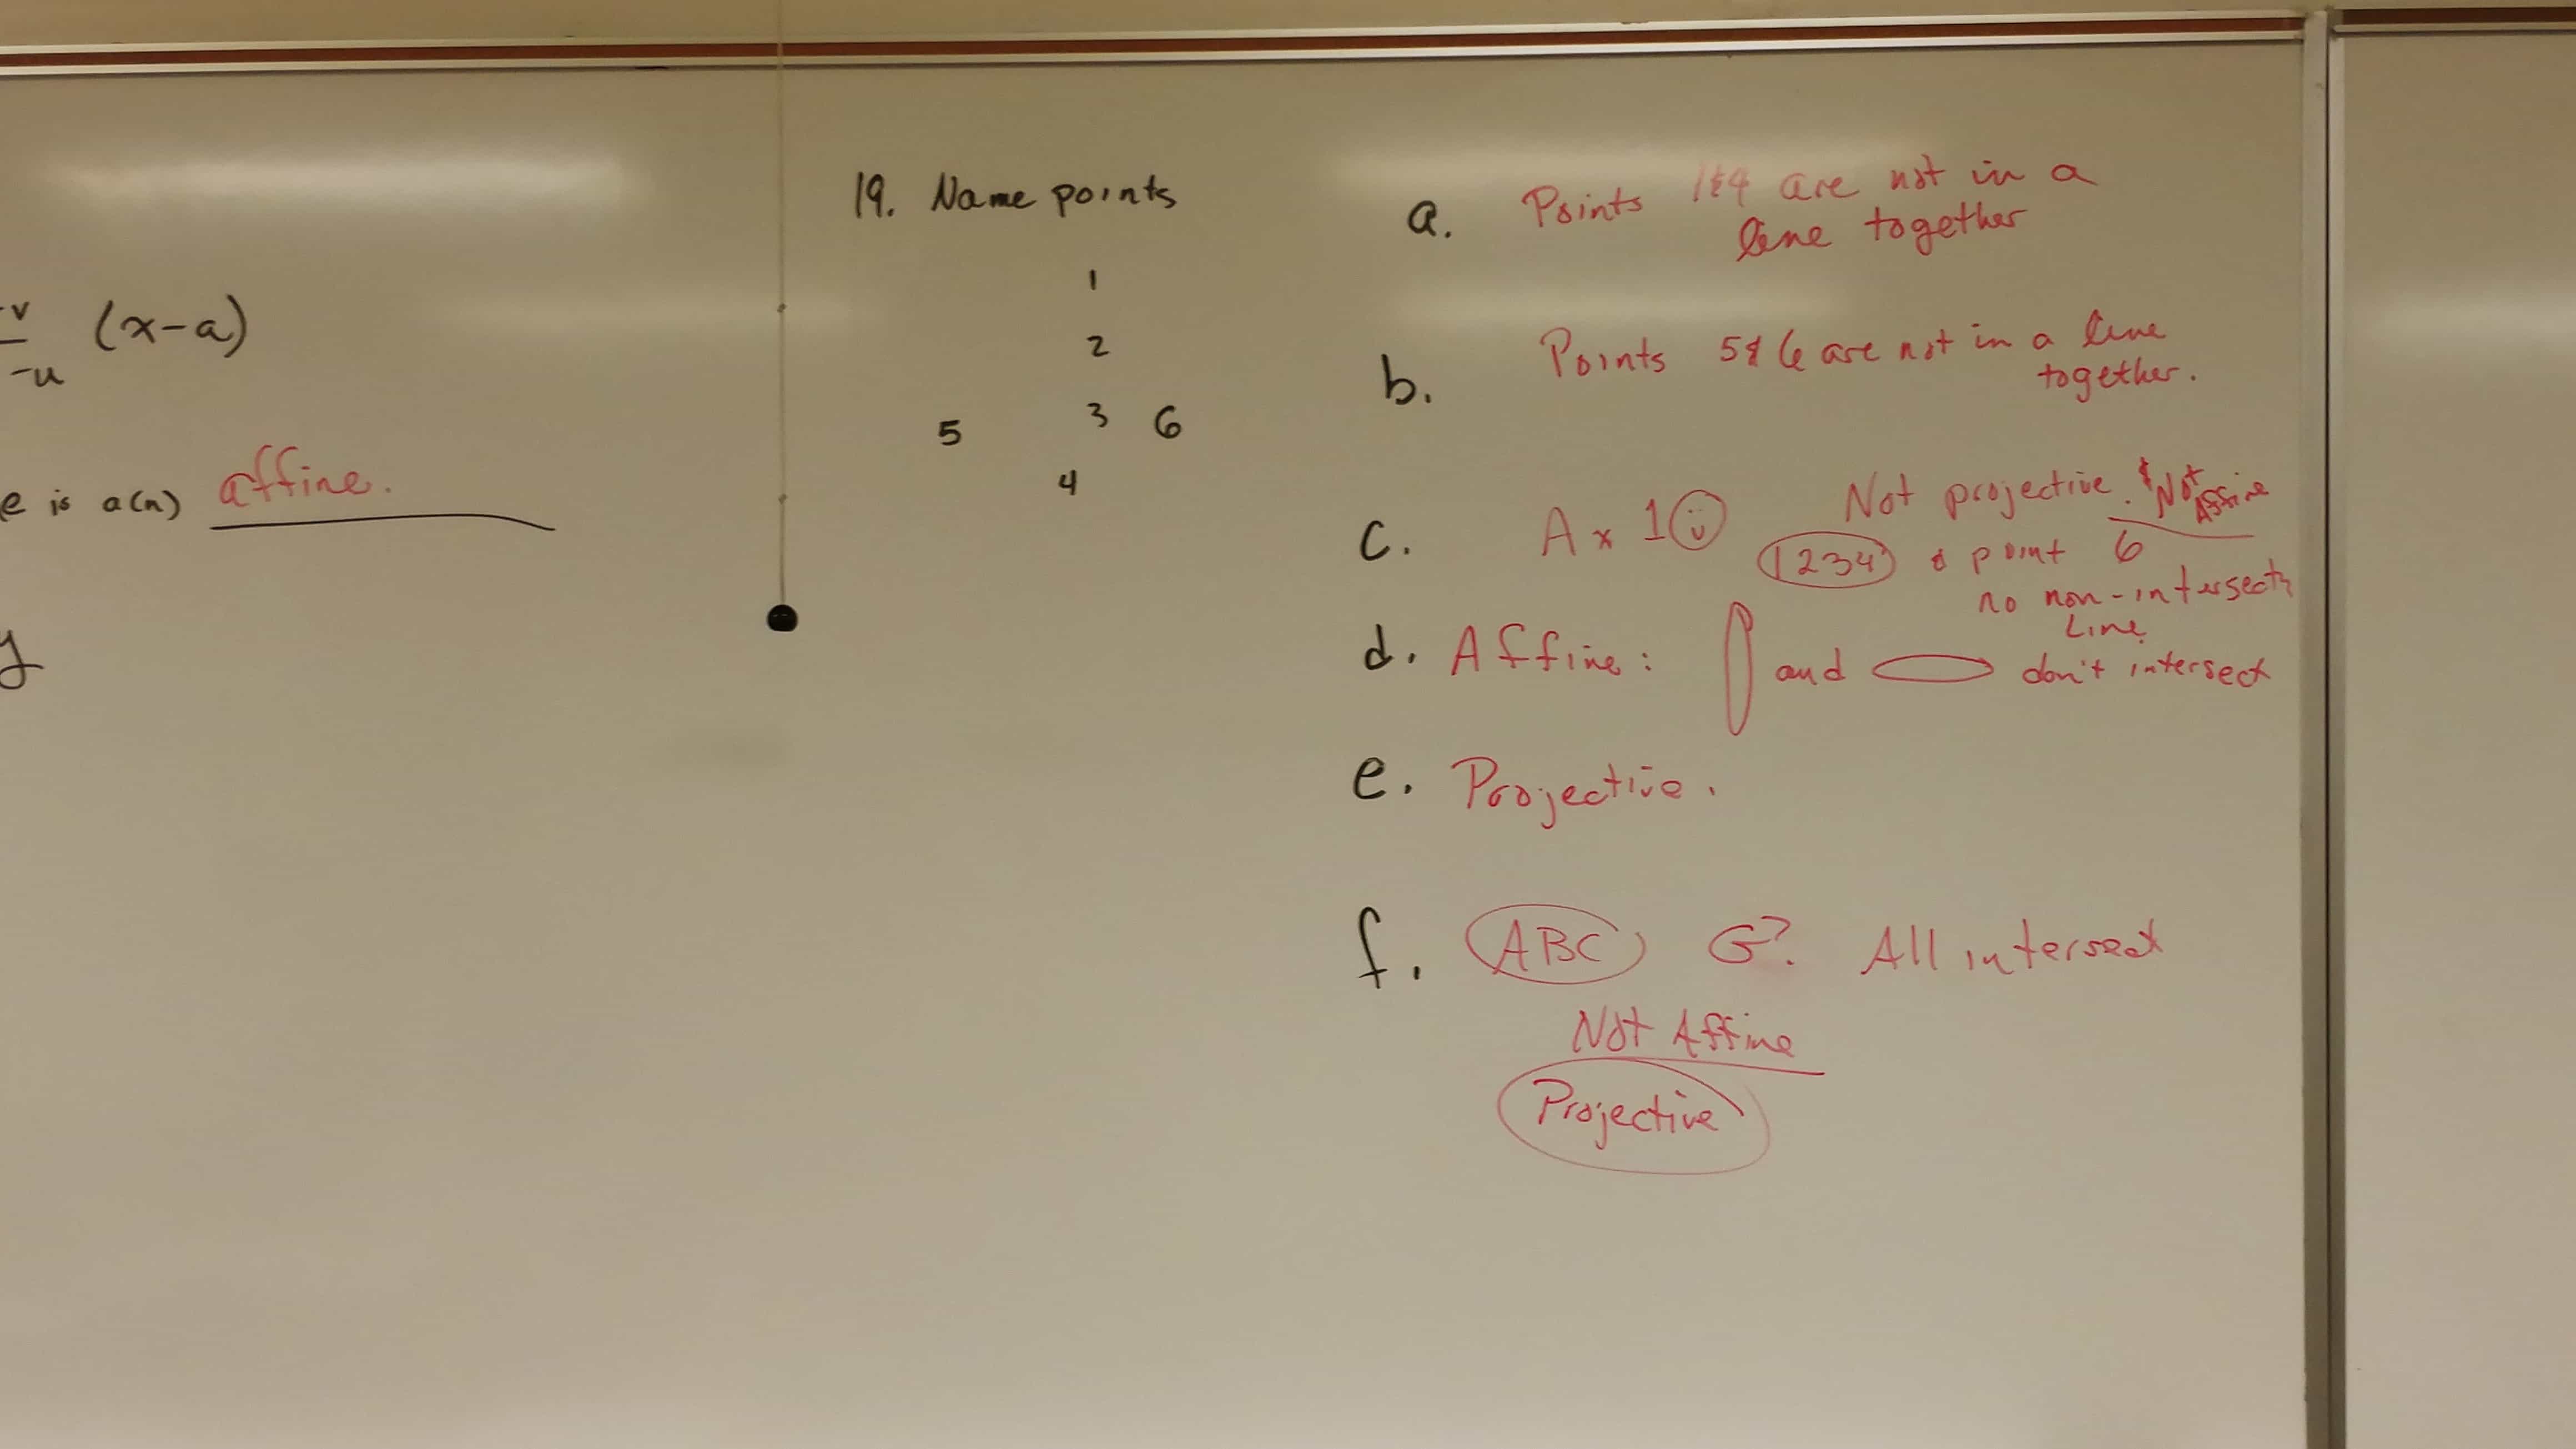 v
(x-a)
-u
e is a(n) affine.
y
19. Name points
1
2
5 3 6
4
a. Points 1&4 are not in a
line together
b. Points 5& 6 are not in a line
together.
c. A x 1 Not projective. & Not Affine
1234 & point 6
no non-intersectn
Line
d. Affine: and don't intersect
e. Projective.
f. ABC G? All intersect
Not Affine
Projective